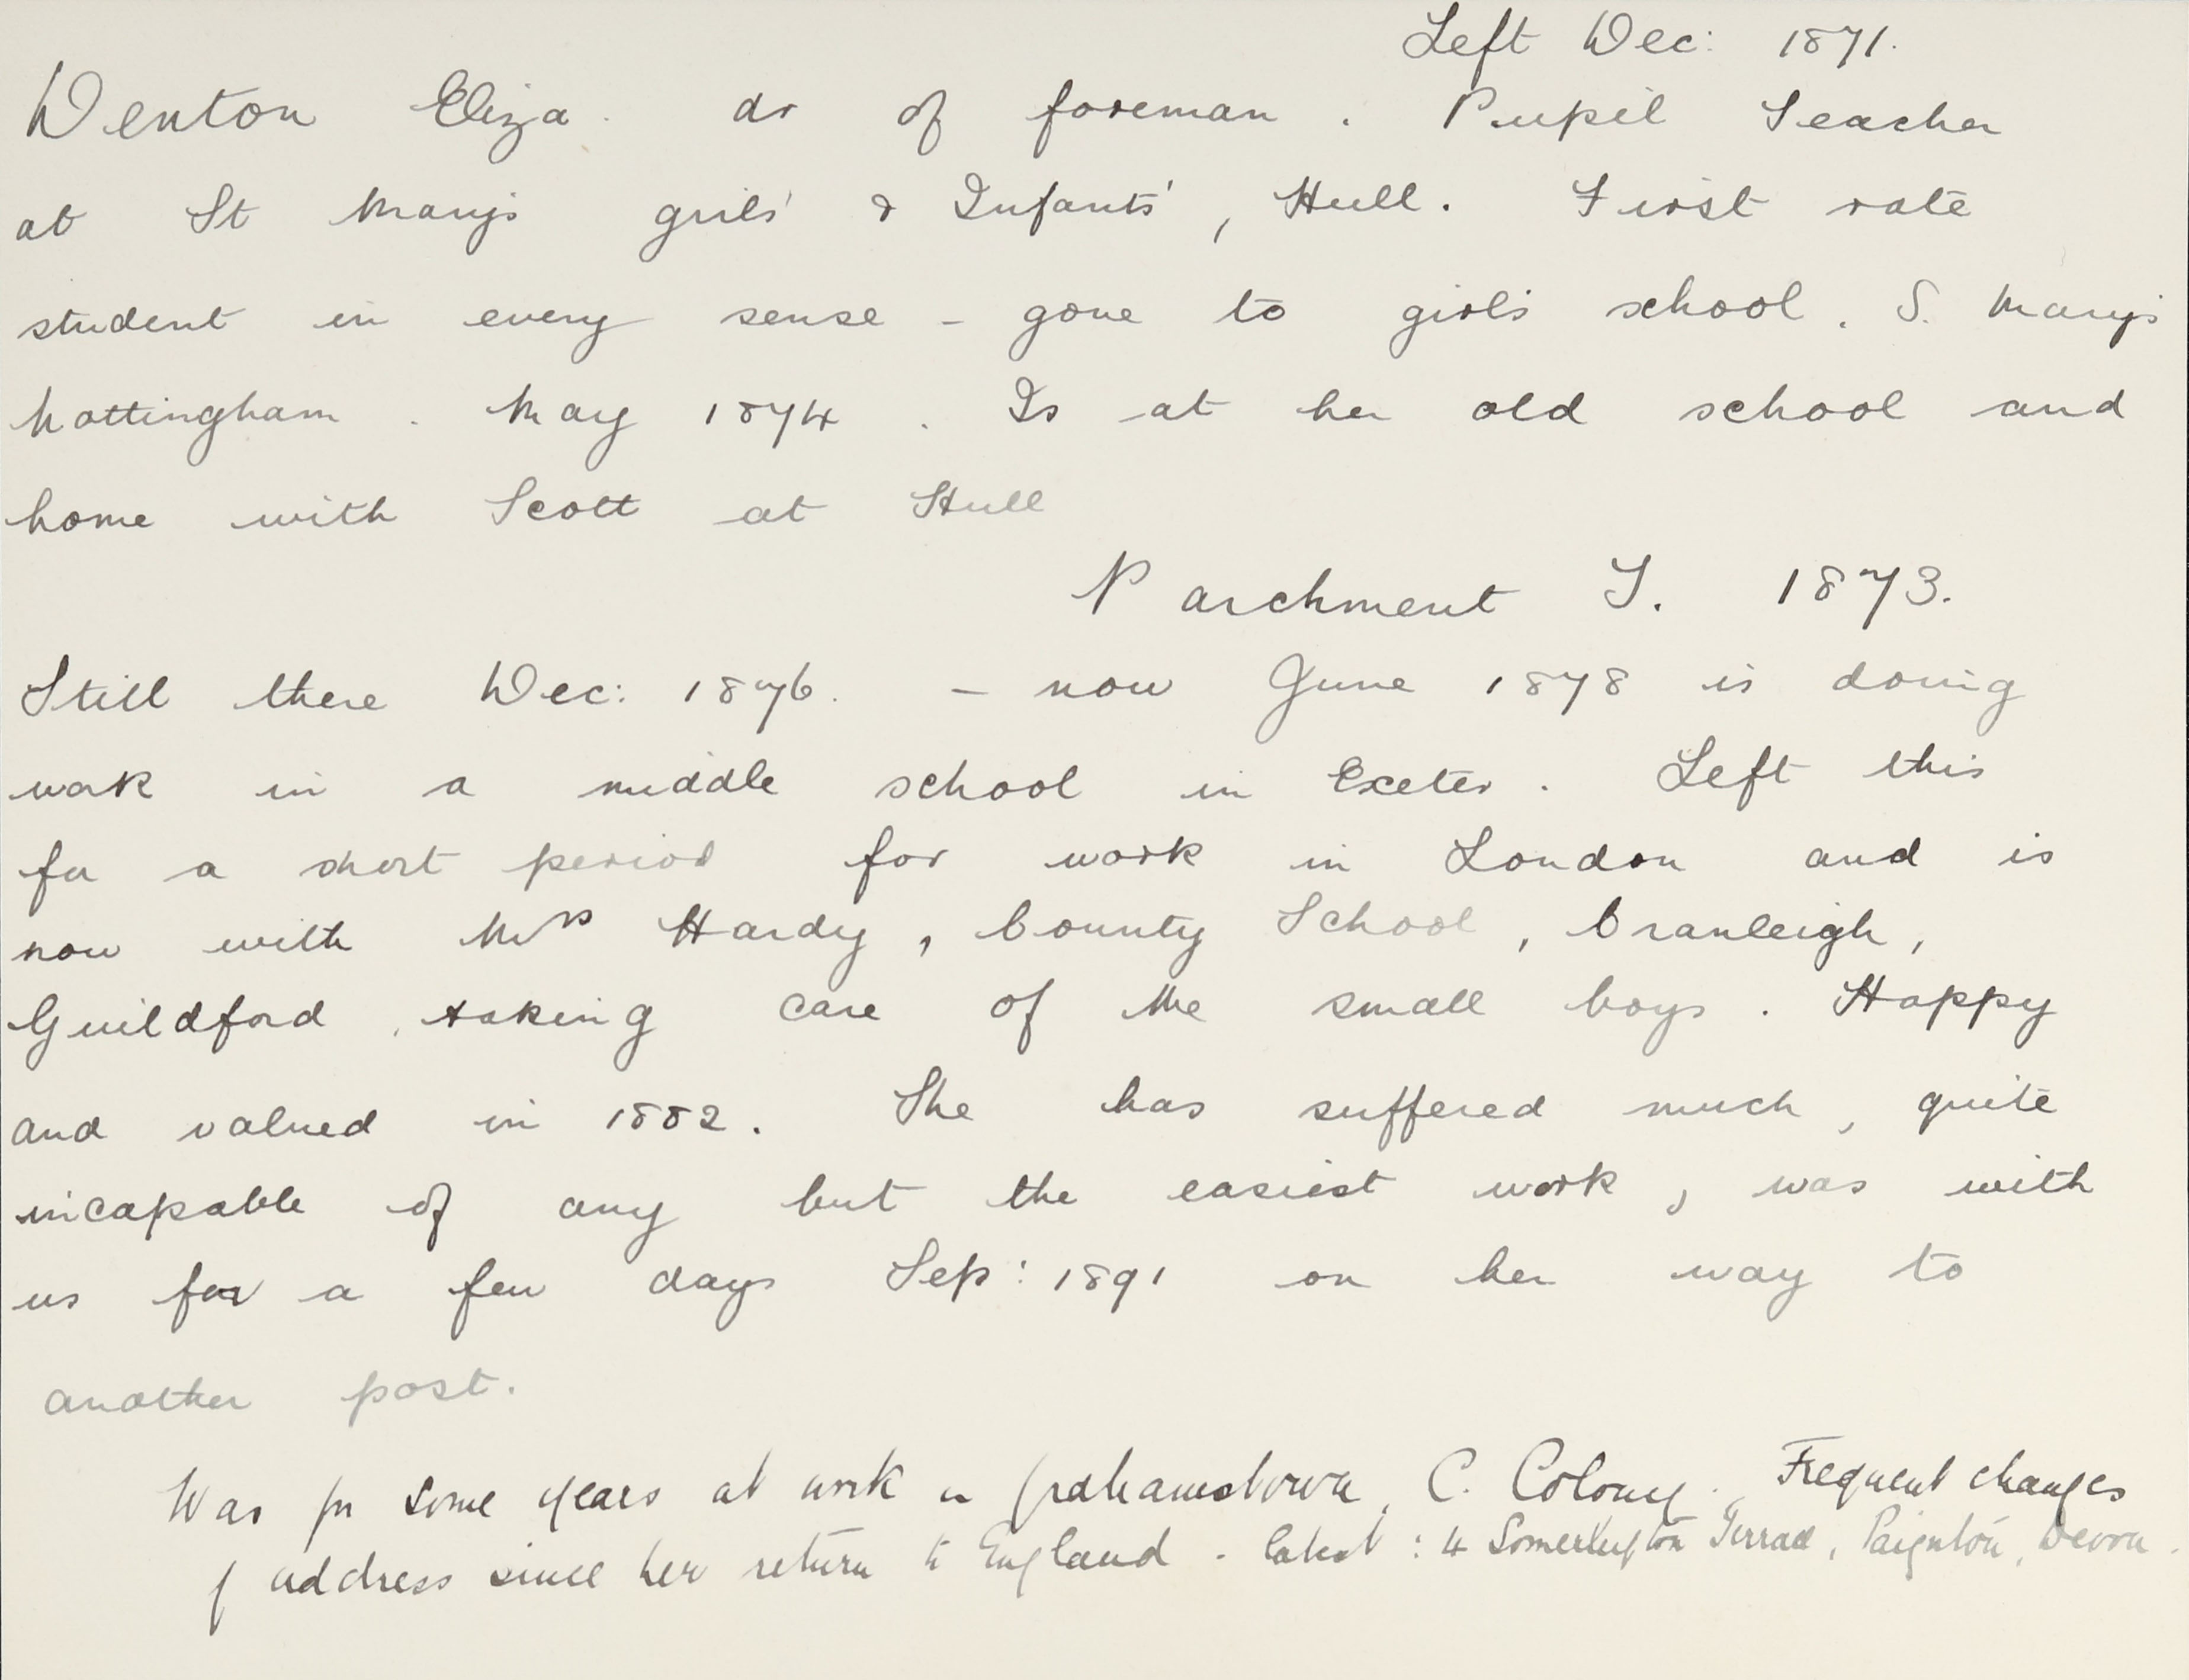 Left Dec: 1871.
Denton Eliza. dr of foreman. Pupil Teacher
at St Mary's girls' & Infants', Hull. First rate
student in every sense - gone to girls' school. S. Mary's
Nottingham. May 1874. Is at her old school and
home with Scott at Hull
Parchment T. 1873.
Still there Dec: 1876. - now June 1878 is doing
work in a middle school in Exeter. Left this
for a short period for work in London and is
now with Mrs Hardy, County School, Cranleigh,
Guildford, taking care of the small boys. Happy
and valued in 1882. She has suffered much, quite
incapable of any but the easiest work, was with
us for a few days Sep: 1891 on her way to
another post.
Was for some years at work in Grahamstown, C. Colony. Frequent changes
of address since her return to England. latest: 4 Terrace, Paignton, Devon.